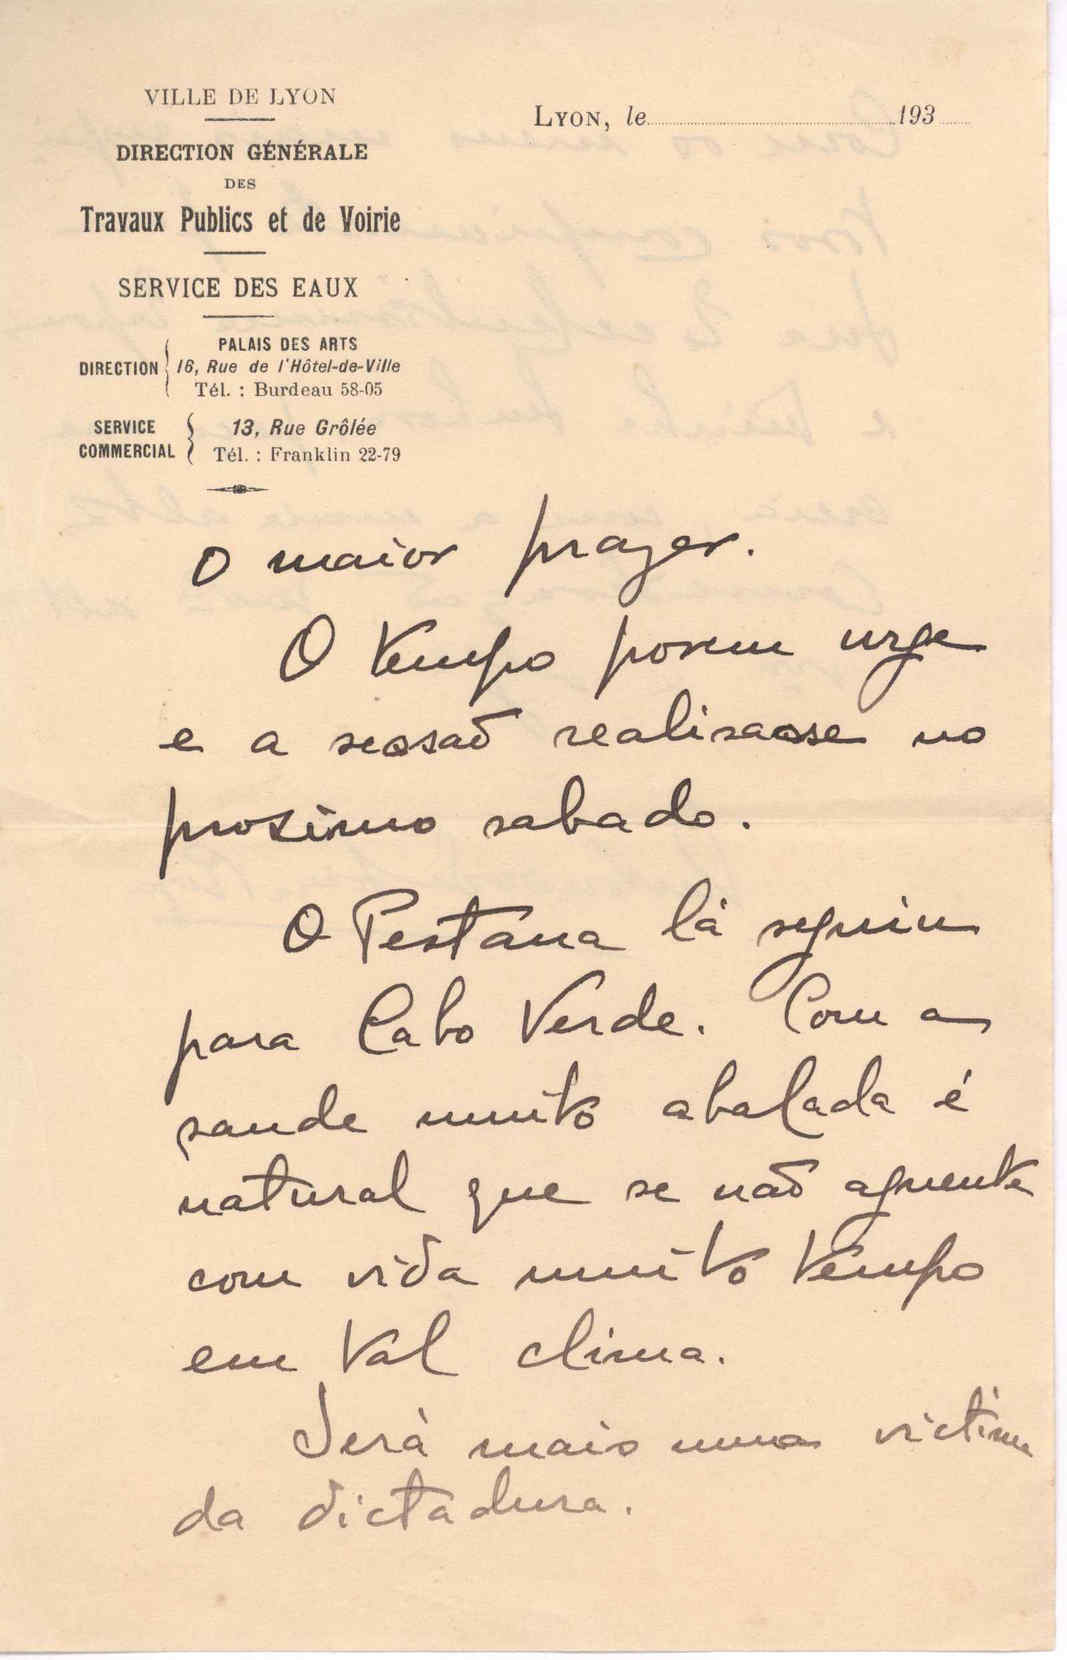 VILLE DE LYON
DIRECTION GÉNÉRALE
DES
Travaux Publics et de Voirie
SERVICE DES EAUX
DIRECTION
PALAIS DES ARTS
16, Rue de l'Hôtel-de-Ville
Tél. : Burdeau 58-05
SERVICE
COMMERCIAL
13, Rue Grôlée
Tél. : Franklin 22-79
LYON, le 193
o maior prazer.
O tempo porem urge
e a sessaõ realisasse no
prosimo sabado.
O Pestana lá seguiu
para Cabo Verde. Com a
saude muito abalada é
natural que se naõ aguente
com vida muito tempo
em tal clima.
Será mais uma victima
da dictadura.